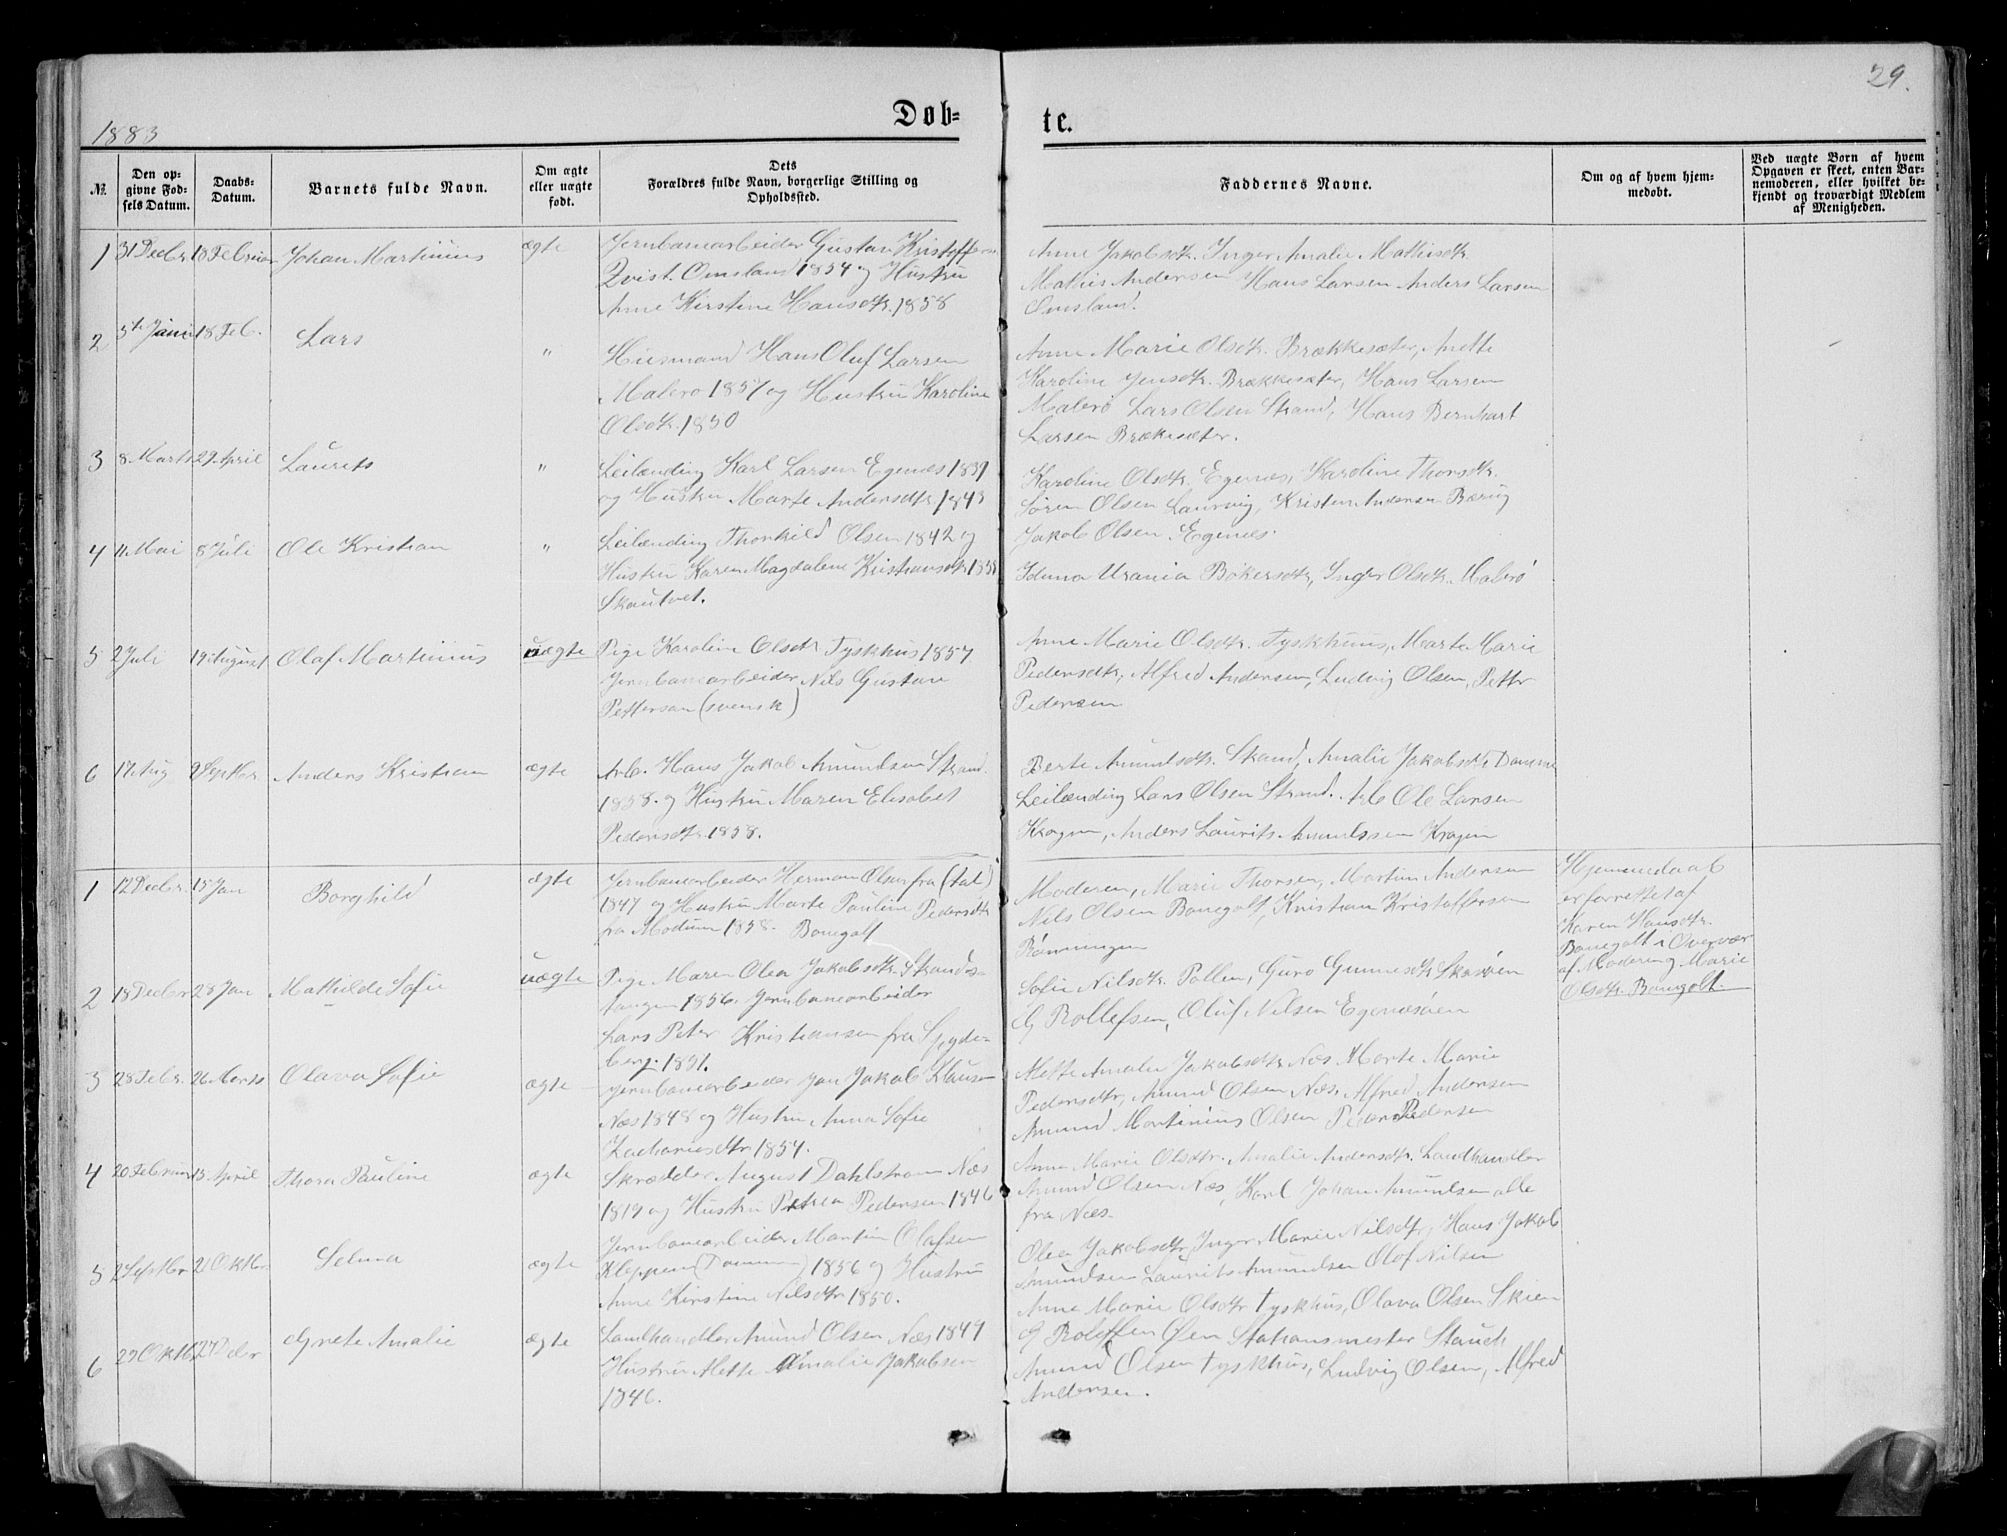 29.
1883
Døb-
te.
№
Den op-
givne Fød-
sels Datum.
Daabs-
Datum.
Barnets fulde Navn.
Om ægte
eller uægte
født.
Dets
Forældres fulde Navn, borgerlige Stilling og
Opholdssted.
Faddernes Navne.
Om og af hvem hjem-
medøbt.
Ved uægte Børn af hvem
Opgaven er skeet, enten Bar-
nemoderen, eller hvilket be-
kjendt og troværdigt Medlem
af Menigheden.
1
31 Decbr.
18 Februar
Johan Martinius
ægte
Jernbanearbeider Gustav Kristoffersen
Qvist. Omsland 1854 og Hustru
Anne Kirstine Hansdtr. 1858
Anne Jakobsdtr. Inger Amalie Mathisdtr.
Mathis Andersen Hans Larsen Anders Larsen
Omsland.
2
18 Feb.
Lars
"
Husmand Hans Oluf Larsen
Malerø 1857 og Hustru Karoline
Olsdtr. 1850
Anne Marie Olsdtr. Brækkesæter, Anette
Karoline Jensdtr. Brækkesæter, Hans Larsen
Malerø Lars Olsen Strand, Hans Bernhart
Larsen Brækesæter.
3
8 Marts
29 April
Laurits
"
Leilænding Karl Larsen Egenæs 1839
og Hustru Marte Andersdtr. 1843
Karoline Olsdtr. Egenæs, Karoline Thorsdtr.
Søren Olsen Laurvig, Kristen Andersen Bærug
Jakob Olsen Egenæs.
4
11 Mai
8 Juli
Ole Kristian
"
Leilænding Thorkild Olsen 1842 og
Hustru Karen Magdalene Kristiansdtr
Skautvet.
Iduna Urania Bøkersdtr, Inger Olsdtr. Malerø
5
2 Juli
19 August
Olaf Martinius
uægte
Pige Karoline Olsdtr Tyskhus 1857
Jernbanearbeider Nils Gustav
Petterson (svensk)
Anne Marie Olsdtr. Tyskhuus, Marte Marie
Pedersdtr, Alfred Andersen, Ludvig Olsen, Petter
Pedersen
6
17 Aug
2 Septbr.
Anders Kristian
ægte
Arb. Hans Jakob Amundsen Strand.
1858. og Hustru Maren Elisabet
Pedersdtr. 1858.
Berte Amundsdtr. Strand, Amalie Jakobsdtr Damme
Leilænding Lars Olsen Strand. Arb Ole Larsen
Kragen, Anders Laurits Amundssen Kragen
1
12 Decbr.
15 Jan
Borghild
ægte
Jernbanearbeider Herman Olsen fra (tal)
1847 og Hustru Marte Pauline Pedersdtr
fra Modum 1858. Bonegolt
Moderen, Marie Thorsen, Martin Andersen
Nils Olsen Bonegolt, Kristian Kristoffersen
Rønningen
Hjemmedaab
er forrettet af
Karen Hansdtr.
Bonegolt i Overvær
af Moderen og Marie
Olsdtr. Bonegolt.
2
18 Decbr
28 Jan
Mathilde Sofie
uægte
Pige Maren Olea Jakobsdtr. Strands-
tangen 1856. Jernbanearbeider
Lars Peter Kristiansen fra Spyde-
berg. 1831.
Sofie Nilsdtr. Pollen, Guro Gunnesdtr Skoøen
G Rollefsen, Oluf Nilsen Egenæsøen
3
28 Febr.
26 Marts
Olava Sofie
ægte
Jernbanearbeider Jan Jakob Klausen
Næs 1848 og Hustru Anna Sofie
Zachariasdtr 1854.
Mette Amalie Jakobsdtr Næs, Marte Marie
Pedersdtr, Amund Olsen Næs, Alfred Andersen
Amund Martinius Olsen Peder Pedersen
4
20 Februar
15 April
Thora Pauline
ægte
Skrædder August Dahlstrøm Næs
1819 og Hustru Petrea Pedersen 1846
Anne Marie Olsdtr. Amalie Andersdtr. Landhandler
Amund Olsen Næs, Karl Johan Amundsen alle
fra Næs.
5
2 Septbr
21 Oktbr.
Selma
ægte
Jernbanearbeider Martin Olafsen
Kleppen (Dammen) 1856 og Hustru
Anne Kirstine Nilsdtr 1850.
Olea Jakobsdtr, Inger Marie Nilsdtr, Hans Jakob
Amundsen Laurits Amundsen Olof Nilsen
6
29 Oktb.
27 Decbr
Agnete Amalie
ægte
Landhandler Amund Olsen Næs 1849
Hustru Mette Amalie Jakobsen
1846.
Anne Marie Olsdtr Tyskhus, Olava Olsen Skien
G Rolefsen Øen Stationsmester Stauch
Amund Olsen Tyskhus, Ludvig Olsen, Alfred
Andersen.